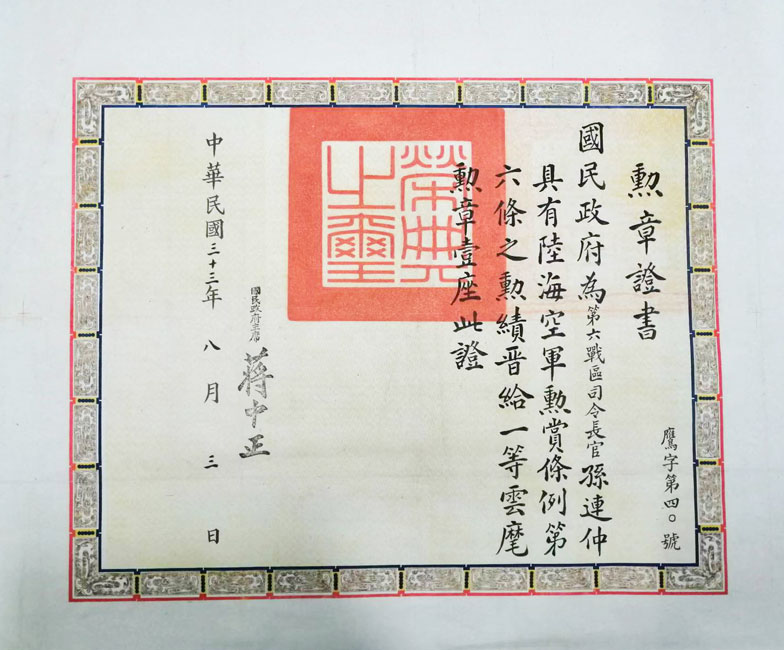 勲章證書
鷹字第四〇號
國民政府為第六戰區司令長官孫連仲
具有陸海空軍勲賞條例第
六條之勲績晋給一等雲麾
勲章壹座此證
榮典之璽
國民政府主席
蔣中正
中華民國三十三年八月三日